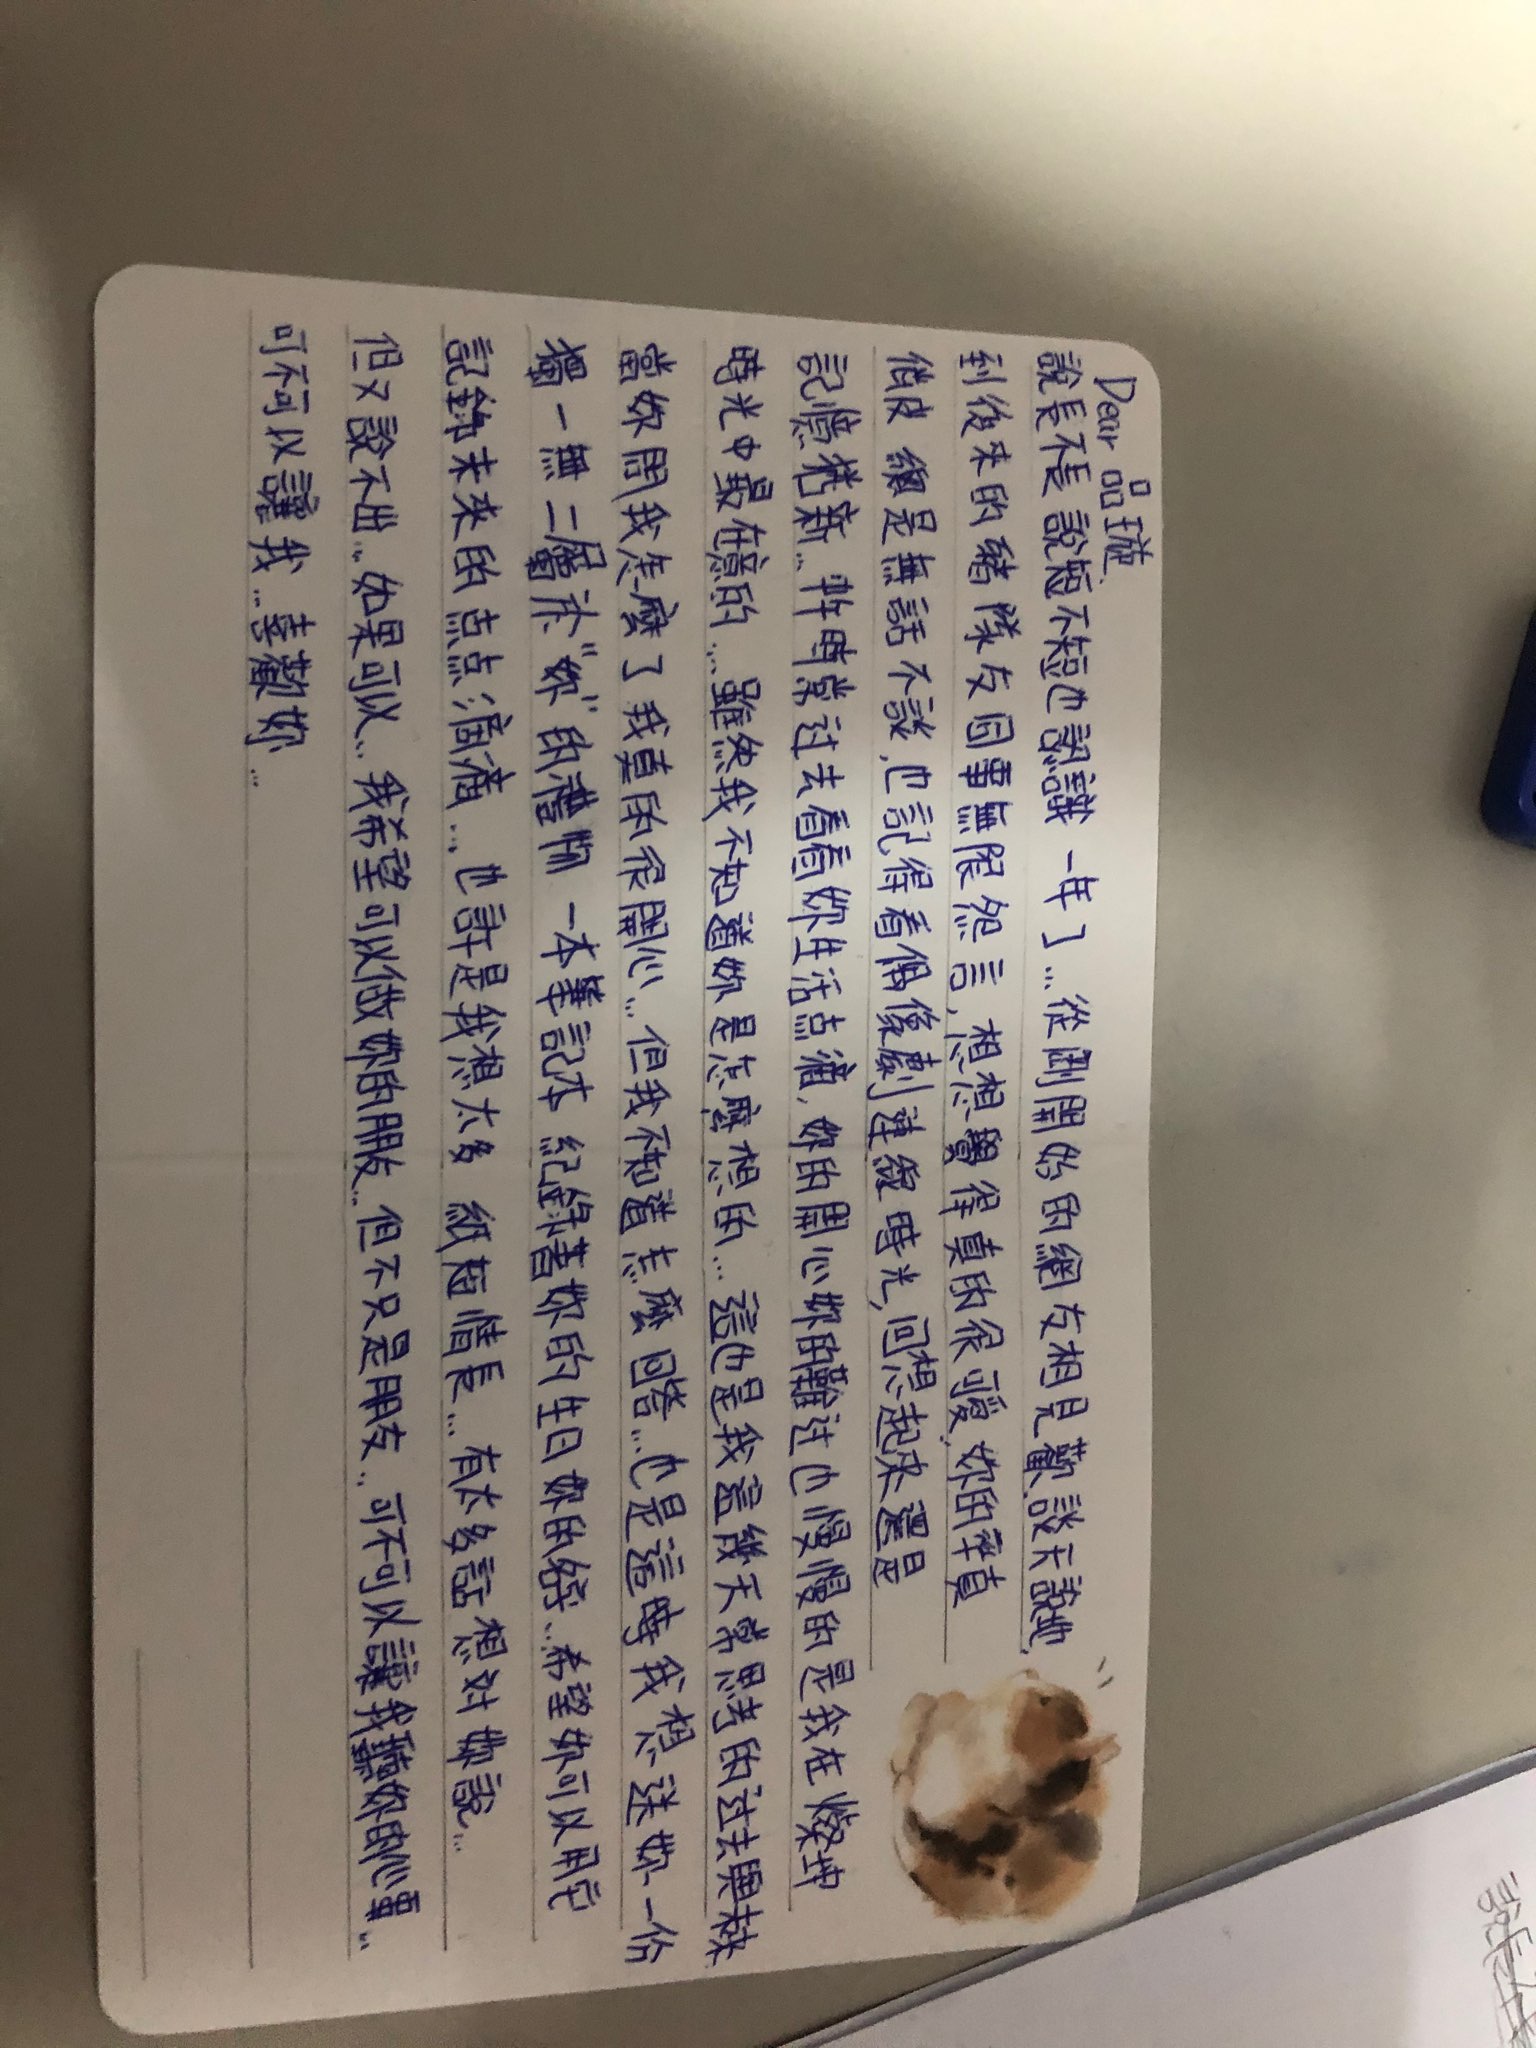 說長不
Dear 品璇.
說長不長 說短不短也認識 一年了...從剛開始的網友相見歡.談天說地,
到後來的豬隊友同事無限怨言,想想覺得真的很可愛,妳的率真
俏皮 總是無話不談,也記得看偶像劇連線時光,回想起來還是
記憶猶新...時常过去看看妳生活点滴,妳的開心妳的難过也慢慢的是我在燦坤
時光中最在意的...雖然我不知道妳是怎麼想的...這也是我這幾天常思考的过去與未來
當妳問我怎麼了我真的很開心...但我不知道怎麼回答...也是這時我想送妳一份
獨一無二屬於"妳"的禮物 一本筆記本 紀錄著妳的生日妳的名字...希望妳可以用它
記錄未來的点点滴滴...也許是我想太多 紙短情長...有太多話想对妳說...
但又說不出...如果可以...我希望可以做妳的朋友...但不只是朋友..可不可以讓我聽妳的心事...
可不可以讓我...喜歡妳...